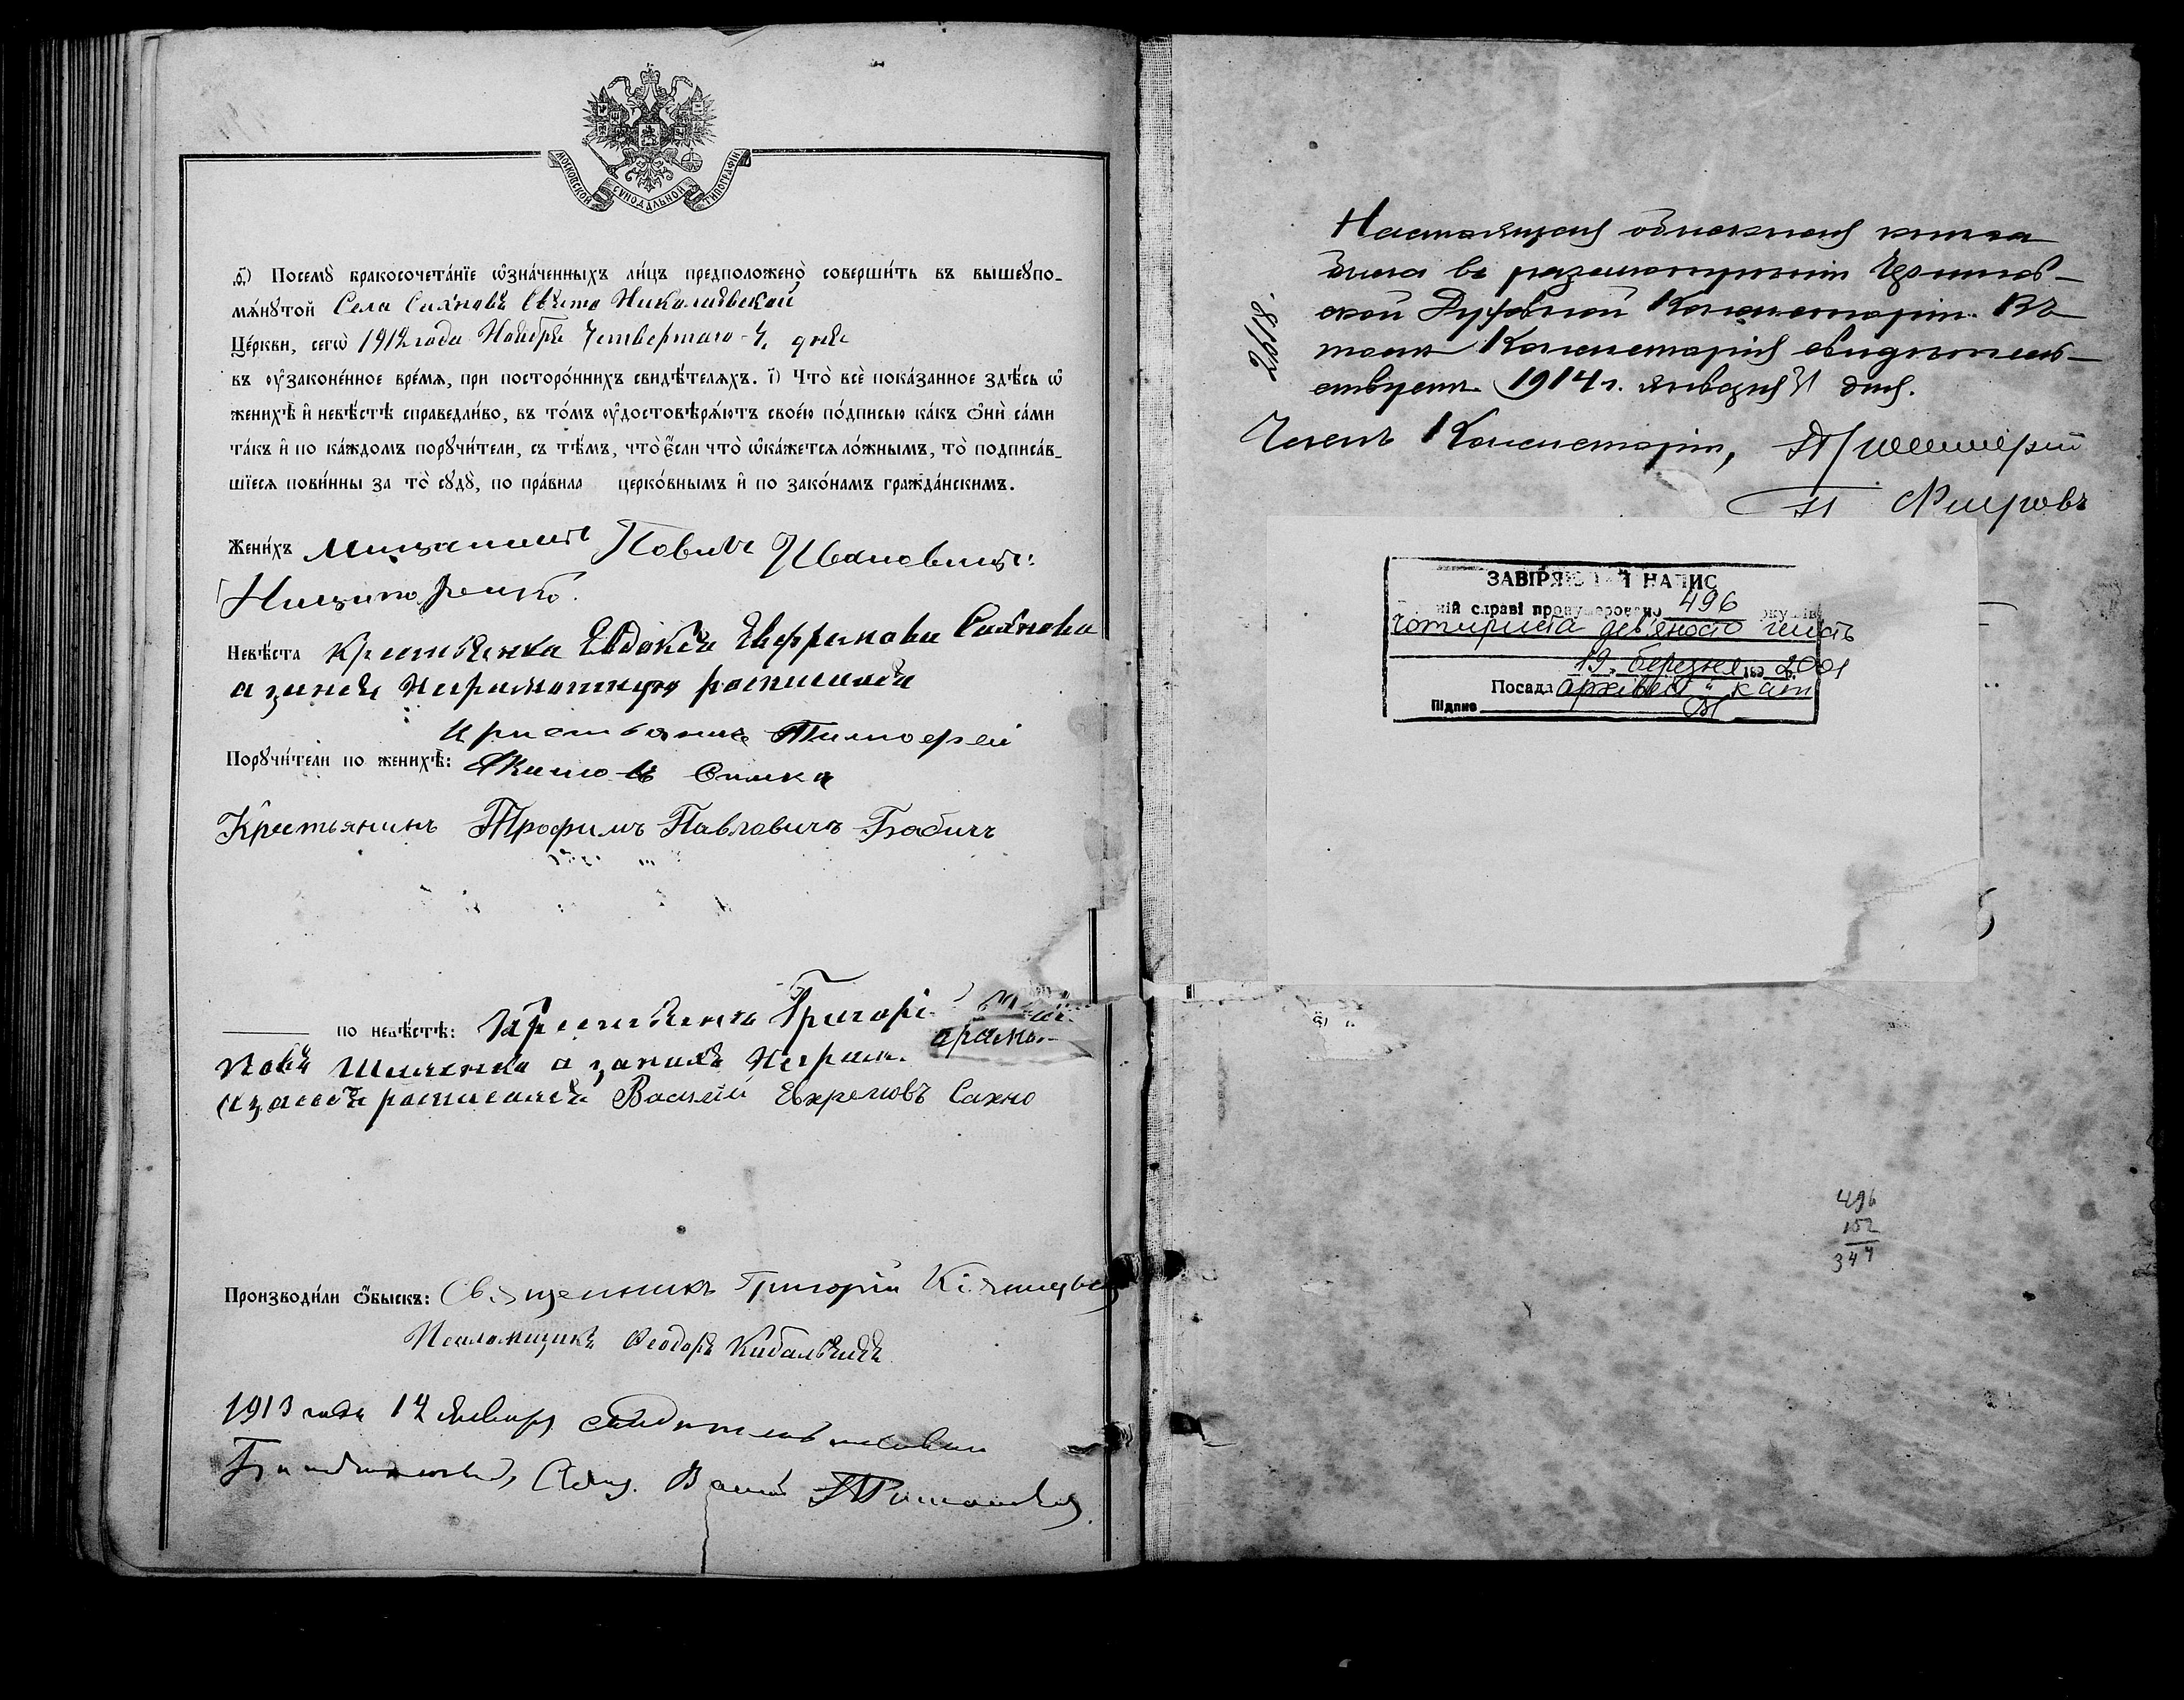 МОСКОВСКОЙ СѴНОДАЛЬНОЙ ТИПОГРАФІИ
Посемꙋ̀ бракосочета́нїе ѡ҆зна́ченныхъ ли́цъ предположено̀ соверши́ть въ вышеꙋпо-
мѧ́нꙋтой Села Сахновъ Свято Николаевской
Це́ркви, сегѡ̀ 1912 года Ноября Четвертаго 4. дня
въ ᲂу҆законе́нное вре́мѧ, при посторо́ннихъ свидѣ́телѧхъ. і҃) Что̀ всѐ пока́занное здѣ́сь ѡ҆
женихѣ̀ и҆ невѣ́стѣ справедли́во, въ то́мъ ᲂу҆достовѣрѧ́ютъ свое́ю по́дписью ка́къ ѻ҆нѝ са́ми
та́къ и҆ по ка́ждомъ порꙋчи́тели, съ тѣ́мъ, что̀ є҆́сли что̀ ѡ҆ка́жетсѧ ло́жнымъ, то̀ подписа́в-
шїесѧ пови́нны за то̀ сꙋдꙋ̀, по пра́вила церко́внымъ и҆ по зако́намъ гражда́нскимъ.
Жени́хъ Мищанинъ Ивановичъ
Невѣ́ста Крестьянка Евдокія Евфремова Сахнова
а занея Неграмотную росписался
Крестьянинъ Тимофей
Порꙋчи́тели по женихѣ̀: Якимовъ Симка
Крестьянинъ Трофимъ Павловичъ Бабичъ
по невѣ́стѣ: Крестьянинъ Григорі
а занихъ Неграм
росписался Василій Евхремовъ Сахно
Производи́ли ѻ҆́быскъ: Священникъ Григорій
Псаломщикъ Феодоръ Кибальчичъ
1913 года 12 Января свидѣтельствовалъ
Благочинный, Свящ.
Настоящая обыскная книга
была въ разсмотреніи Чернигов-
ской Духовной Консисторіи. Въ
томъ Консисторія свидѣтель-
ствуетъ. 1914 г. января 31 дня.
Членъ Консисторіи,
ЗАВІРЯ Й НАПИС
ній справі пронумеровано 496
чотириста дев'яносто шість
19 березня 2001
Посада архівіст кат
Підпис
496
152
344